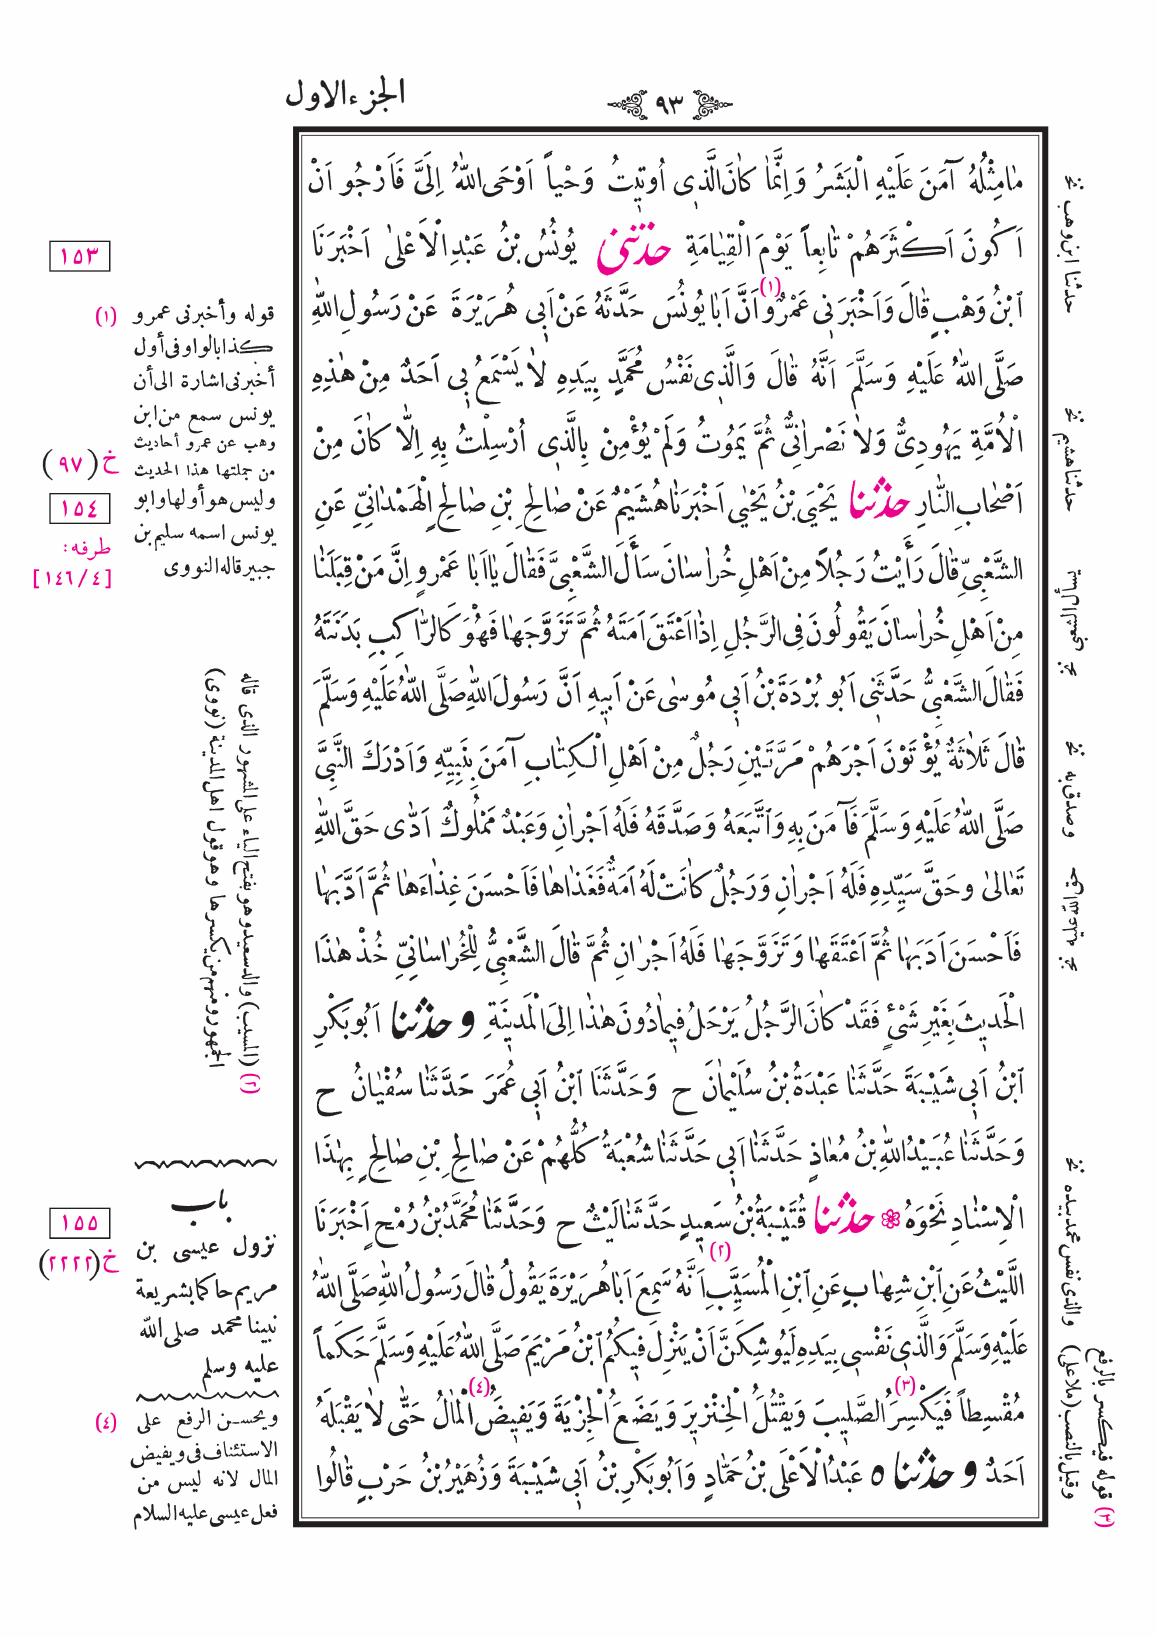 ٩٣
الجزء الاول
مَامِثْلُهُ آمَنَ عَلَيْهِ الْبَشَرُ وَاِنَّمَا كَانَ الَّذِى اُوتِيتُ وَحْياً اَوْحَى اللّٰهُ اِلَىَّ فَاَرْجُو اَنْ
اَكُونَ اَكْثَرَهُمْ تَابِعاً يَوْمَ الْقِيَامَةِ حدثنى يُونُسُ بْنُ عَبْدِ الْاَعْلىٰ اَخْبَرَنَا
ابْنُ وَهْبٍ قَالَ وَاَخْبَرَنِى عَمْرٌو (١) اَنَّ اَبَا يُونُسَ حَدَّثَهُ عَنْ اَبِى هُرَيْرَةَ عَنْ رَسُولِ اللّٰهِ
صَلَّى اللّٰهُ عَلَيْهِ وَسَلَّمَ اَنَّهُ قَالَ وَالَّذِى نَفْسُ مُحَمَّدٍ بِيَدِهِ لَا يَسْمَعُ بِى اَحَدٌ مِنْ هٰذِهِ
الْاُمَّةِ يَهُودِىٌّ وَلَا نَصْرَانِىٌّ ثُمَّ يَمُوتُ وَلَمْ يُؤْمِنْ بِالَّذِى اُرْسِلْتُ بِهِ اِلَّا كَانَ مِنْ
اَصْحَابِ النَّارِ حدثنا يَحْيَى بْنُ يَحْيٰى اَخْبَرَنَا هُشَيْمٌ عَنْ صَالِحِ بْنِ صَالِحٍ الْهَمْدَانِىِّ عَنِ
الشَّعْبِىِّ قَالَ رَأَيْتُ رَجُلاً مِنْ اَهْلِ خُرَاسَانَ سَأَلَ الشَّعْبِىَّ فَقَالَ يَا اَبَا عَمْرٍو اِنَّ مَنْ قِبَلَنَا
مِنْ اَهْلِ خُرَاسَانَ يَقُولُونَ فِى الرَّجُلِ اِذَا اَعْتَقَ اَمَتَهُ ثُمَّ تَزَوَّجَهَا فَهُوَ كَالرَّاكِبِ بَدَنَتَهُ
فَقَالَ الشَّعْبِىُّ حَدَّثَنِى اَبُو بُرْدَةَ بْنُ اَبِى مُوسٰى عَنْ اَبِيهِ اَنَّ رَسُولَ اللّٰهِ صَلَّى اللّٰهُ عَلَيْهِ وَسَلَّمَ
قَالَ ثَلَاثَةٌ يُؤْتَوْنَ اَجْرَهُمْ مَرَّتَيْنِ رَجُلٌ مِنْ اَهْلِ الْكِتَابِ آمَنَ بِنَبِيِّهِ وَاَدْرَكَ النَّبِىَّ
صَلَّى اللّٰهُ عَلَيْهِ وَسَلَّمَ فَآمَنَ بِهِ وَاتَّبَعَهُ وَصَدَّقَهُ فَلَهُ اَجْرَانِ وَعَبْدٌ مَمْلُوكٌ اَدّٰى حَقَّ اللّٰهِ
تَعَالىٰ وَحَقَّ سَيِّدِهِ فَلَهُ اَجْرَانِ وَرَجُلٌ كَانَتْ لَهُ اَمَةٌ فَغَذَاهَا فَاَحْسَنَ غِذَاءَهَا ثُمَّ اَدَّبَهَا
فَاَحْسَنَ اَدَبَهَا ثُمَّ اَعْتَقَهَا وَتَزَوَّجَهَا فَلَهُ اَجْرَانِ ثُمَّ قَالَ الشَّعْبِىُّ لِلْخُرَاسَانِىِّ خُذْ هٰذَا
الْحَدِيثَ بِغَيْرِ شَىْءٍ فَقَدْ كَانَ الرَّجُلُ يَرْحَلُ فِيمَا دُونَ هٰذَا اِلَى الْمَدِينَةِ و حدثنا اَبُو بَكْرِ
ابْنُ اَبِى شَيْبَةَ حَدَّثَنَا عَبْدَةُ بْنُ سُلَيْمَانَ ح وَحَدَّثَنَا ابْنُ اَبِى عُمَرَ حَدَّثَنَا سُفْيَانُ ح
وَحَدَّثَنَا عُبَيْدُ اللّٰهِ بْنُ مُعَاذٍ حَدَّثَنَا اَبِى حَدَّثَنَا شُعْبَةُ كُلُّهُمْ عَنْ صَالِحِ بْنِ صَالِحٍ بِهٰذَا
الْاِسْنَادِ نَحْوَهُ حدثنا قُتَيْبَةُ بْنُ سَعِيدٍ حَدَّثَنَا لَيْثٌ ح وَحَدَّثَنَا مُحَمَّدُ بْنُ رُمْحٍ اَخْبَرَنَا
اللَّيْثُ عَنِ ابْنِ شِهَابٍ عَنِ ابْنِ الْمُسَيَّبِ (٢) اَنَّهُ سَمِعَ اَبَا هُرَيْرَةَ يَقُولُ قَالَ رَسُولُ اللّٰهِ صَلَّى اللّٰهُ
عَلَيْهِ وَسَلَّمَ وَالَّذِى نَفْسِى بِيَدِهِ لَيُوشِكَنَّ اَنْ يَنْزِلَ فِيكُمُ ابْنُ مَرْيَمَ صَلَّى اللّٰهُ عَلَيْهِ وَسَلَّمَ حَكَماً
مُقْسِطاً فَيَكْسِرَُ (٣) الصَّلِيبَ وَيَقْتُلَُ الْخِنْزِيرَ وَيَضَعَُ الْجِزْيَةَ وَيَفِيضَُ (٤) الْمَالُ حَتّٰى لَا يَقْبَلَهُ
اَحَدٌ و حدثنا ٥ عَبْدُ الْاَعْلَى بْنُ حَمَّادٍ وَاَبُو بَكْرِ بْنُ اَبِى شَيْبَةَ وَزُهَيْرُ بْنُ حَرْبٍ قَالُوا
حدثنا ابن وهب نخ
حدثنا هشيم نخ
وصدق به نخ
والذى نفس محمد بيده نخ
(٣) قوله فيكسر بالرفع
وقيل بالنصب (ملا على)
١٥٣
(١) قوله وأخبرنى عمرو
كذا بالواو فى أول
أخبرنى اشارة الى أن
يونس سمع من ابن
وهب عن عمرو أحاديث
من جملتها هذا الحديث
وليس هو أولها وابو
يونس اسمه سليم بن
جبير قاله النووى
خ (٩٧)
١٥٤
طرفه:
[١٤٦/٤]
(٢) (المسيب) والد سعيد وهو بفتح الياء على المشهور الذى قاله
الجمهور ومنهم من يكسرها وهو قول اهل المدينة (نووى)
١٥٥
خ (٢٢٢٢)
باب
نزول عيسى بن
مريم حاكما بشريعة
نبينا محمد صلى الله
عليه وسلم
(٤) ويحسن الرفع على
الاستئناف فى ويفيض
المال لانه ليس من
فعل عيسى عليه السلام